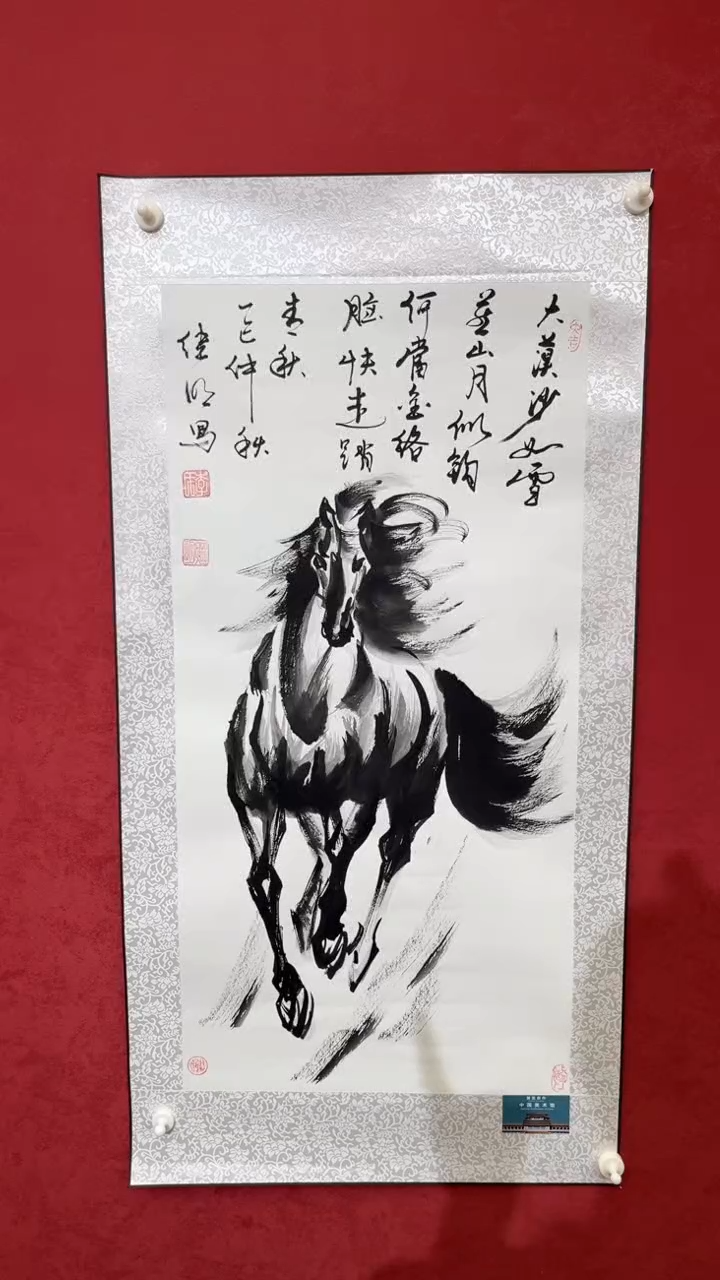 大漠沙如雪
燕山月似鈎
何當金络
脑快走踏
清秋
乙巳仲秋
明写
中国美术馆